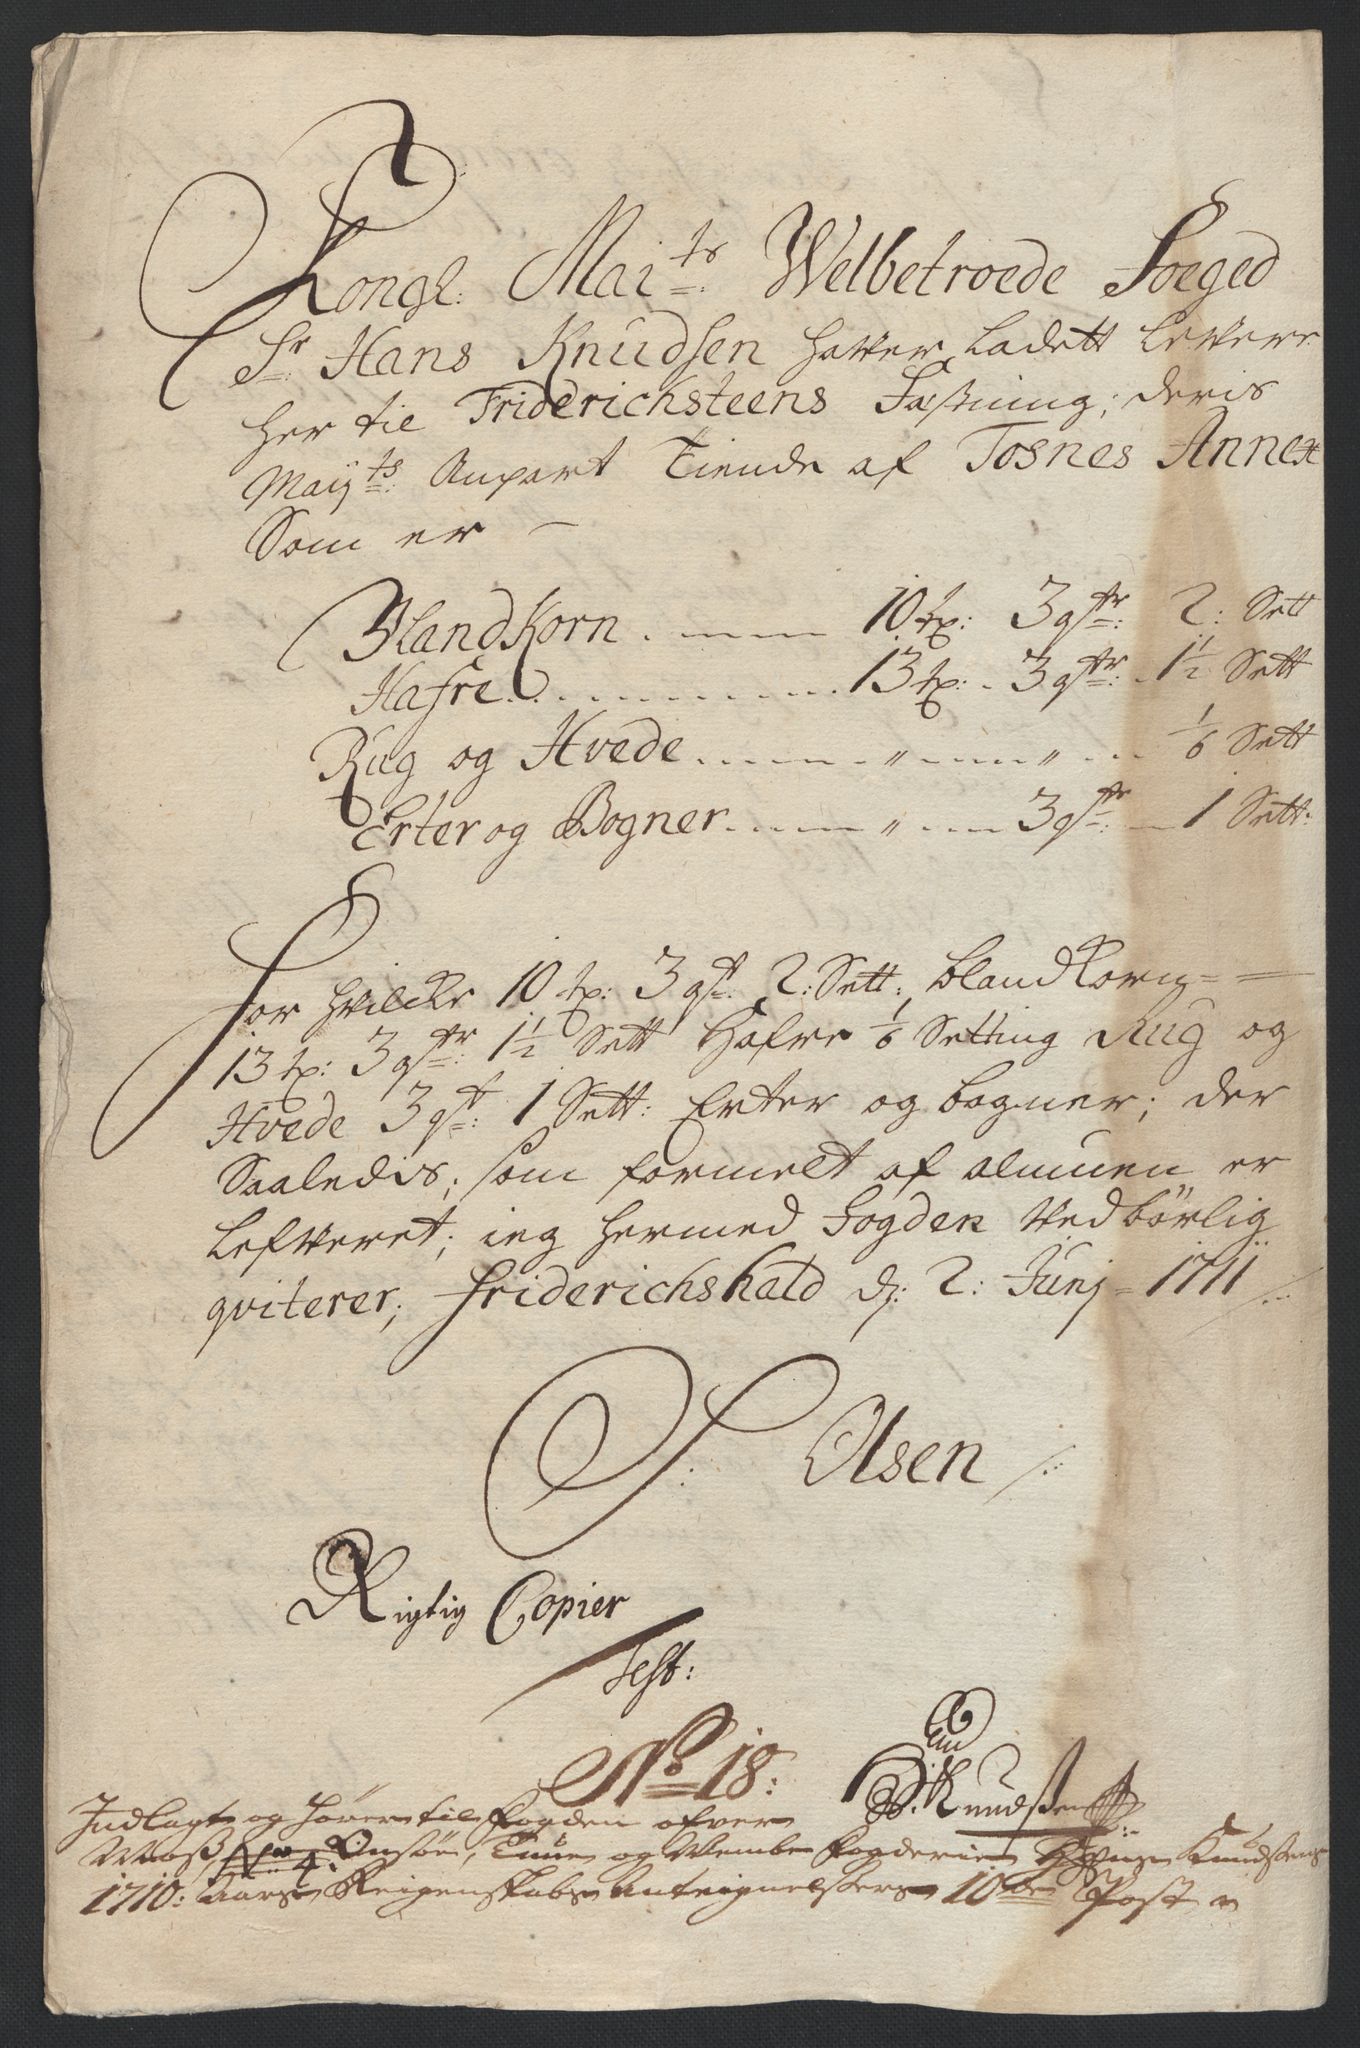 Kongl: Mai:ts Welbetroede Foeged
Sr Hans Knudsen hafver Ladett Levere
her til Friderichsteens Fæstning; deris
Maij:ts Anpart Tiende af Tosnes Annex
Som er —
BlandKorn . — — — 10 tr: 3 qtr: 2: Sett
Hafre . . . . . . . . . 13 tr: . 3 qtr: . 1½ Sett
Rug og Hvede . . . . . „ . . . . „ . . . 1/6 Sett
Erter og Bogner . . . . . „ . . . 3 qtr: — 1 Sett:
For hvilcke 10 tr: 3 qt: 2: Sett: blandKorn = =
13 tr: 3 qtr: 1½ Sett Hafre 1/6 Setting Rug og
Hvede 3 qt: 1 Sett: Erter og bogner; der
Saaledis; som formelt af almuen er
Lefveret; ieg hermed Fogden vedbörlig
qviterer; Friderichshald d: 2: Junj = 1711
S: Olsen
Rigtig Copier
Test:
No 18:
H: Knudsen
Indlagt og hører til Fogden ofver
Moss, Onsöe, Tune og Wembe Fogderie Hans Knudsens
No 4:
1710: Aars Reigenskabs Antegnelsers 10de Post